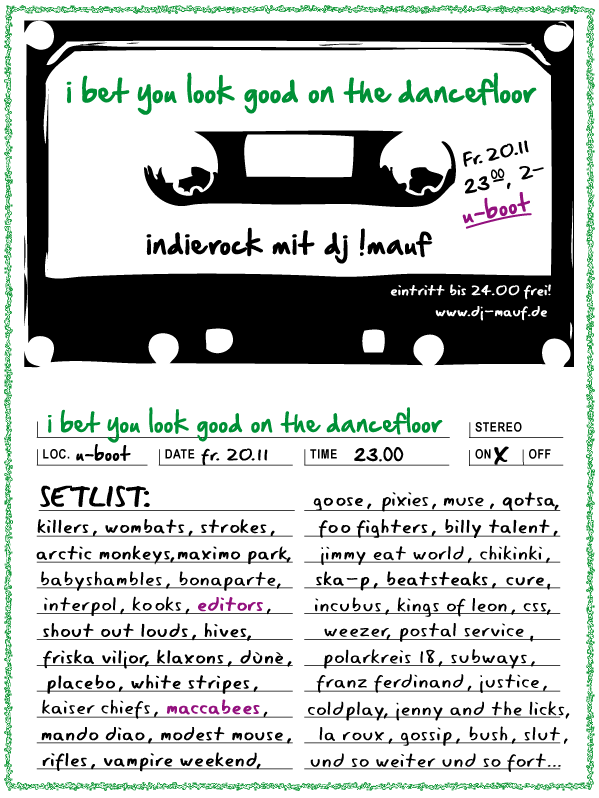 i bet you look good on the dancefloor
Fr. 20.11
23⁰⁰, 2-
u-boot
indierock mit dj !mauf
eintritt bis 24.00 frei!
www.dj-mauf.de
i bet you look good on the dancefloor
STEREO
LOC. u-boot DATE fr. 20.11 TIME 23.00 ON X OFF
SETLIST:
killers, wombats, strokes,
arctic monkeys, maximo park,
babyshambles, bonaparte,
interpol, kooks, editors,
shout out louds, hives,
friska viljor, klaxons, dùnè,
placebo, white stripes,
kaiser chiefs, maccabees,
mando diao, modest mouse,
rifles, vampire weekend,
goose, pixies, muse, qotsa,
foo fighters, billy talent,
jimmy eat world, chikinki,
ska-p, beatsteaks, cure,
incubus, kings of leon, css,
weezer, postal service,
polarkreis 18, subways,
franz ferdinand, justice,
coldplay, jenny and the licks,
la roux, gossip, bush, slut,
und so weiter und so fort...